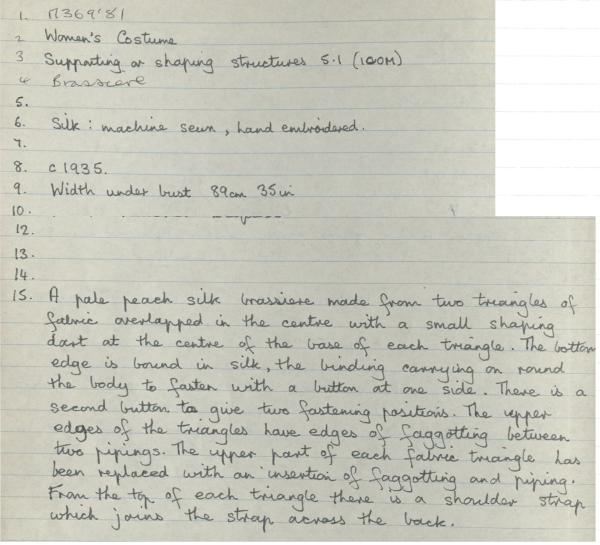 1. M369'81
2 Women's Costume
3 Supporting or shaping structures 5.1 (100M)
4 Brassiere
5.
6. Silk : machine sewn, hand embroidered.
7.
8. c 1935.
9. Width under bust 89cm 35in
10.
12.
13.
14.
15. A pale peach silk brassiere made from two triangles of
fabric overlapped in the centre with a small shaping
dart at the centre of the base of each triangle. The bottom
edge is bound in silk, the binding carrying on round
the body to fasten with a button at one side. There is a
second button to give two fastening positions. The upper
edges of the triangles have edges of faggotting between
two pipings. The upper part of each fabric triangle has
been replaced with an insertion of faggotting and piping.
From the top of each triangle there is a shoulder strap
which joins the strap across the back.